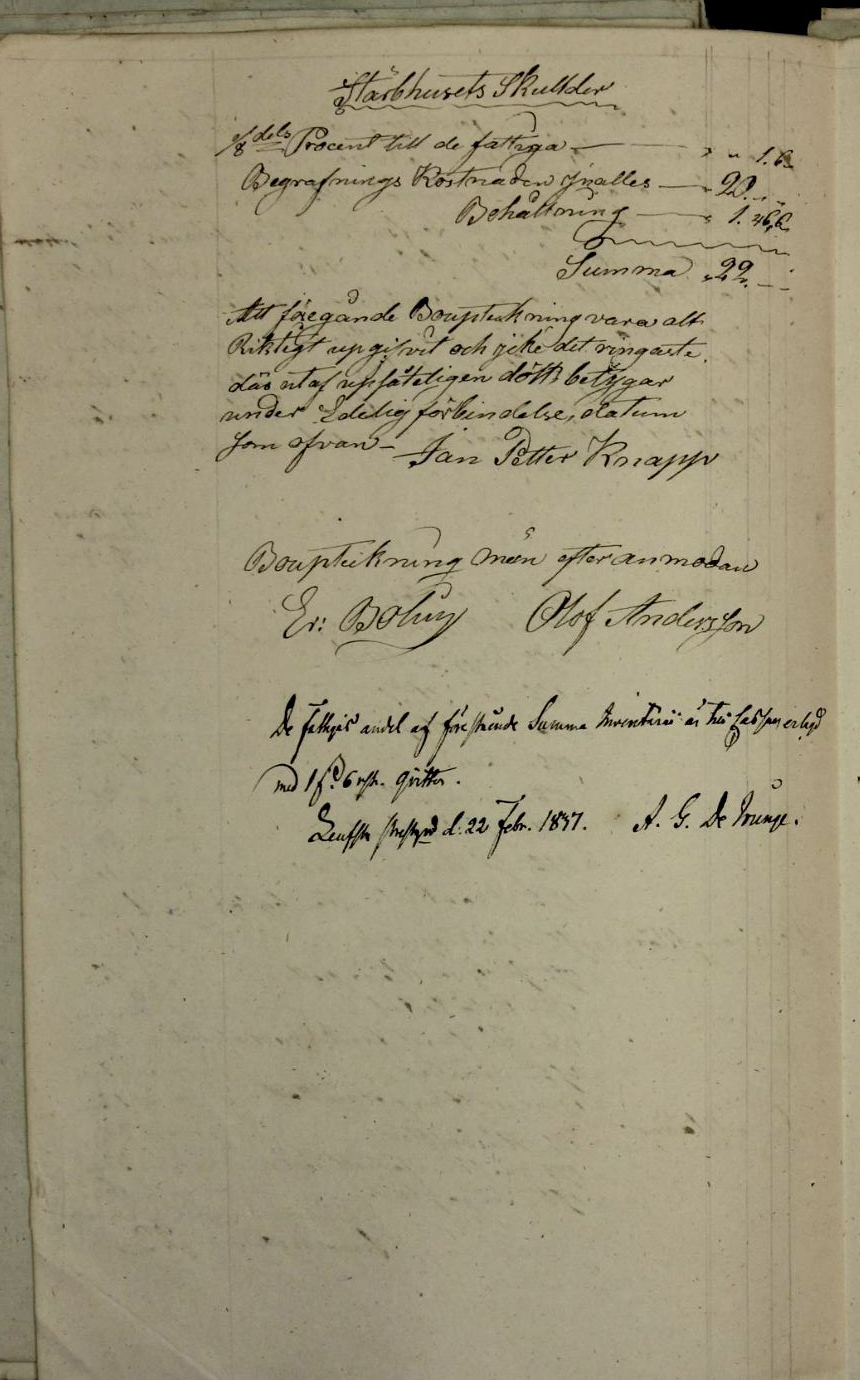 Stärbhusets Skullder
1/8 dels Procent till de fattiga — " " 1.6.
Begrafnings Kostnaden Jnalles — " 20. " "
Behållning — " 1. 46.6.
Summa " 22. — —
Att föregånde Bouptekning vara alt
Riktigt upgifvit och jcke det ringaste
däs utaf upsåteligen dölt betygar
under Edelig förbindelse, datum
som ofvan — Jan Petter Knapp
Bouptekning män efter anmodan
Er: Bohm Olof Andersson
De fattigas andel af förestående Summa Inventarii är till Cassan erlagd
med 1 s. 6 rst. qvitt.
Leufsta d. 22 Febr. 1837. A. G. De Bunge.